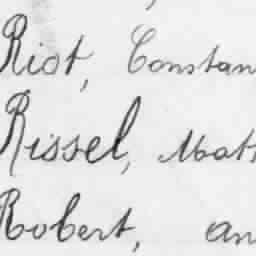 Riot, Constan
Rissel, Matt
Robert, an